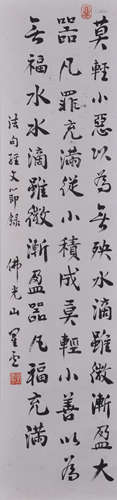 莫輕小惡以為無殃水滴雖微漸盈大
器凡罪充滿從小積成莫輕小善以為
無福水水滴雖微漸盈器凡福充滿
法句經文節錄
佛光山 星雲